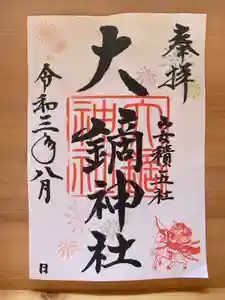 奉拝
安積五社
大鏑神社
令和三年八月 日
大鏑神社